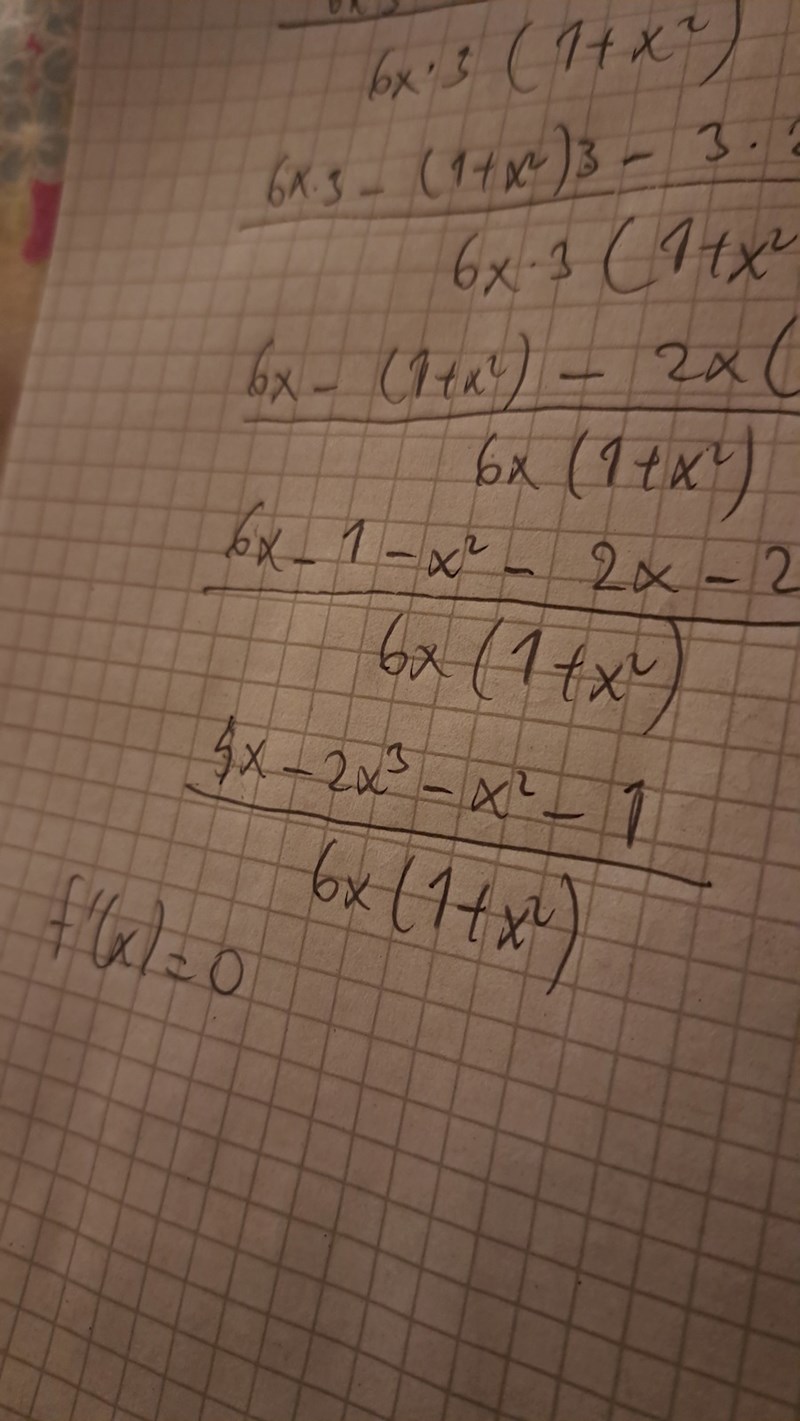 6x·3 (1+x²)
6x·3 - (1+x²)3 - 3·
6x·3 (1+x²
6x - (1+x²) - 2x(
6x (1+x²)
6x - 1 - x² - 2x - 2
6x (1+x²)
4x - 2x³ - x² - 1
6x (1+x²)
f'(x)=0